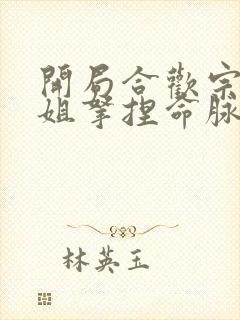 開局合歡宗
姐拏捏命脉
林英玉